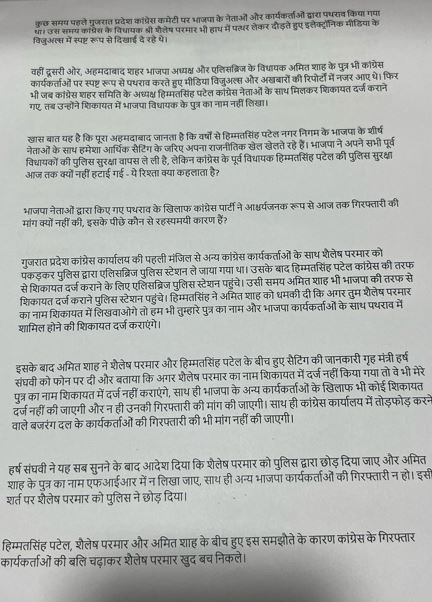 कुछ समय पहले गुजरात प्रदेश कांग्रेस कमेटी पर भाजपा के नेताओं और कार्यकर्ताओं द्वारा पथराव किया गया
था। उस समय कांग्रेस के विधायक श्री शैलेष परमार भी हाथ में पत्थर लेकर दौड़ते हुए इलेक्ट्रॉनिक मीडिया के
विजुअल्स में स्पष्ट रूप से दिखाई दे रहे थे।
वहीं दूसरी ओर, अहमदाबाद शहर भाजपा अध्यक्ष और एलिसब्रिज के विधायक अमित शाह के पुत्र भी कांग्रेस
कार्यकर्ताओं पर स्पष्ट रूप से पथराव करते हुए मीडिया विजुअल्स और अखबारों की रिपोर्टों में नजर आए थे। फिर
भी जब कांग्रेस शहर समिति के अध्यक्ष हिम्मतसिंह पटेल कांग्रेस नेताओं के साथ मिलकर शिकायत दर्ज कराने
गए, तब उन्होंने शिकायत में भाजपा विधायक के पुत्र का नाम नहीं लिखा।
खास बात यह है कि पूरा अहमदाबाद जानता है कि वर्षों से हिम्मतसिंह पटेल नगर निगम के भाजपा के शीर्ष
नेताओं के साथ हमेशा आर्थिक सेटिंग के जरिए अपना राजनीतिक खेल खेलते रहे हैं। भाजपा ने अपने सभी पूर्व
विधायकों की पुलिस सुरक्षा वापस ले ली है, लेकिन कांग्रेस के पूर्व विधायक हिम्मतसिंह पटेल की पुलिस सुरक्षा
आज तक क्यों नहीं हटाई गई - ये रिश्ता क्या कहलाता है?
भाजपा नेताओं द्वारा किए गए पथराव के खिलाफ कांग्रेस पार्टी ने आश्चर्यजनक रूप से आज तक गिरफ्तारी की
मांग क्यों नहीं की, इसके पीछे कौन से रहस्यमयी कारण हैं?
गुजरात प्रदेश कांग्रेस कार्यालय की पहली मंजिल से अन्य कांग्रेस कार्यकर्ताओं के साथ शैलेष परमार को
पकड़कर पुलिस द्वारा एलिसब्रिज पुलिस स्टेशन ले जाया गया था। उसके बाद हिम्मतसिंह पटेल कांग्रेस की तरफ
से शिकायत दर्ज कराने के लिए एलिसब्रिज पुलिस स्टेशन पहुंचे। उसी समय अमित शाह भी भाजपा की तरफ से
शिकायत दर्ज कराने पुलिस स्टेशन पहुंचे। हिम्मतसिंह ने अमित शाह को धमकी दी कि अगर तुम शैलेष परमार
का नाम शिकायत में लिखवाओगे तो हम भी तुम्हारे पुत्र का नाम और भाजपा कार्यकर्ताओं के साथ पथराव में
शामिल होने की शिकायत दर्ज कराएंगे।
इसके बाद अमित शाह ने शैलेष परमार और हिम्मतसिंह पटेल के बीच हुए सेटिंग की जानकारी गृह मंत्री हर्ष
संघवी को फोन पर दी और बताया कि अगर शैलेष परमार का नाम शिकायत में दर्ज नहीं किया गया तो वे भी मेरे
पुत्र का नाम शिकायत में दर्ज नहीं कराएंगे, साथ ही भाजपा के अन्य कार्यकर्ताओं के खिलाफ भी कोई शिकायत
दर्ज नहीं की जाएगी और न ही उनकी गिरफ्तारी की मांग की जाएगी। साथ ही कांग्रेस कार्यालय में तोड़फोड़ करने
वाले बजरंग दल के कार्यकर्ताओं की गिरफ्तारी की भी मांग नहीं की जाएगी।
हर्ष संघवी ने यह सब सुनने के बाद आदेश दिया कि शैलेष परमार को पुलिस द्वारा छोड़ दिया जाए और अमित
शाह के पुत्र का नाम एफआईआर में न लिखा जाए, साथ ही अन्य भाजपा कार्यकर्ताओं की गिरफ्तारी न हो। इसी
शर्त पर शैलेष परमार को पुलिस ने छोड़ दिया।
हिम्मतसिंह पटेल, शैलेष परमार और अमित शाह के बीच हुए इस समझौते के कारण कांग्रेस के गिरफ्तार
कार्यकर्ताओं की बलि चढ़ाकर शैलेष परमार खुद बच निकले।